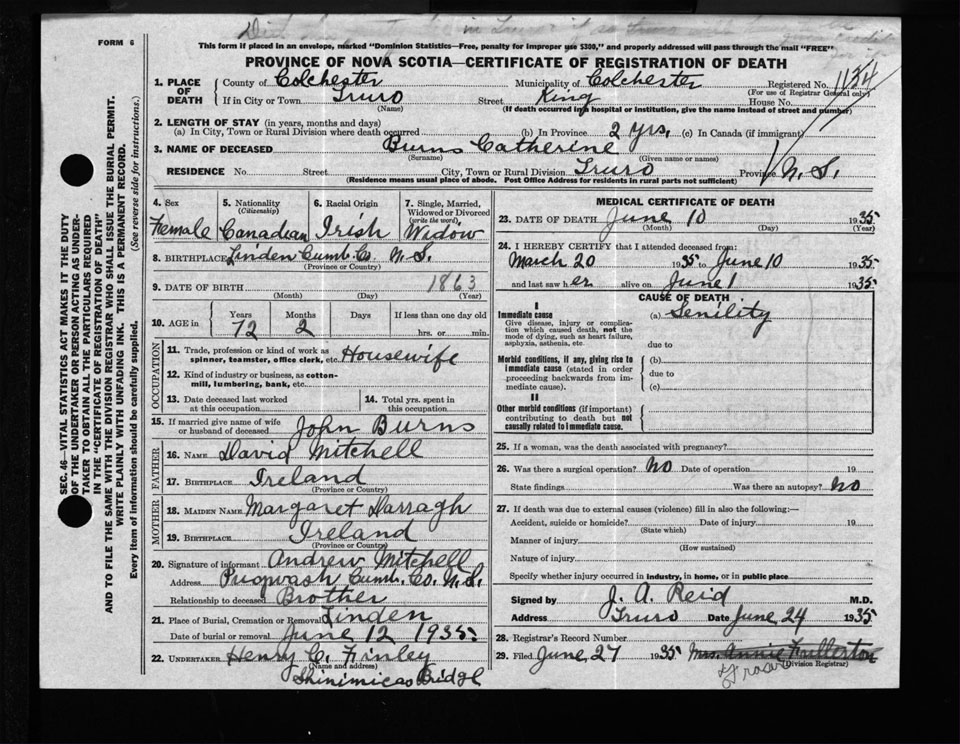 in Truro if so
FORM 6
This form if placed in an envelope, marked "Dominion Statistics—Free, penalty for improper use $300," and properly addressed will pass through the mail "FREE"
PROVINCE OF NOVA SCOTIA—CERTIFICATE OF REGISTRATION OF DEATH
1. PLACE OF DEATH County of Colchester Municipality of Colchester Registered No. 1134
(For use of Registrar General only)
If in City or Town Truro Street King House No.
(Name) (If death occurred in a hospital or institution, give the name instead of street and number)
2. LENGTH OF STAY (in years, months and days)
(a) In City, Town or Rural Division where death occurred (b) In Province 2 yrs. (c) In Canada (if immigrant)
3. NAME OF DECEASED Burns Catherine
(Surname) (Given name or names)
RESIDENCE No. Street City, Town or Rural Division Truro Province N.S.
(Residence means usual place of abode. Post Office Address for residents in rural parts not sufficient)
4. Sex 5. Nationality (Citizenship) 6. Racial Origin 7. Single, Married, Widowed or Divorced (write the word)
Female Canadian Irish Widow
8. BIRTHPLACE Linden Cumb. Co. N.S.
(Province or Country)
9. DATE OF BIRTH 1863
(Month) (Day) (Year)
10. AGE in Years Months Days If less than one day old
72 2 hrs. or min.
OCCUPATION
11. Trade, profession or kind of work as spinner, teamster, office clerk, etc. Housewife
12. Kind of industry or business, as cotton-mill, lumbering, bank, etc.
13. Date deceased last worked at this occupation 14. Total yrs. spent in this occupation
15. If married give name of wife or husband of deceased John Burns
FATHER
16. NAME David Mitchell
17. BIRTHPLACE Ireland
(Province or Country)
MOTHER
18. MAIDEN NAME Margaret Darragh
19. BIRTHPLACE Ireland
(Province or Country)
20. Signature of informant Andrew Mitchell
Address Pugwash Cumb. Co. N.S.
Relationship to deceased Brother
21. Place of Burial, Cremation or Removal Linden
Date of burial or removal June 12 1935
22. UNDERTAKER Henry C. Finley
(Name and address)
Shinimicas Bridge
MEDICAL CERTIFICATE OF DEATH
23. DATE OF DEATH June 10 1935
(Month) (Day) (Year)
24. I HEREBY CERTIFY that I attended deceased from:
March 20 1935 to June 10 1935
and last saw her alive on June 1 1935
CAUSE OF DEATH
I
Immediate cause (a) Senility
Give disease, injury or complication which caused death, not the mode of dying, such as heart failure, asphyxia, asthenia, etc.
due to
Morbid conditions, if any, giving rise to immediate cause (stated in order proceeding backwards from immediate cause).
(b)
due to
(c)
II
Other morbid conditions (if important) contributing to death but not causally related to immediate cause.
25. If a woman, was the death associated with pregnancy?
26. Was there a surgical operation? No Date of operation 19
State findings Was there an autopsy? No
27. If death was due to external causes (violence) fill in also the following:—
Accident, suicide or homicide? Date of injury 19
(State which)
Manner of injury
(How sustained)
Nature of injury
Specify whether injury occurred in industry, in home, or in public place
Signed by J. A. Reid M.D.
Address Truro Date June 24 1935
28. Registrar's Record Number
29. Filed June 27 1935 Mrs. Annie Fullerton
(Division Registrar)
SEC. 46—VITAL STATISTICS ACT MAKES IT THE DUTY
OF THE UNDERTAKER OR PERSON ACTING AS UNDER-
TAKER TO OBTAIN ALL THE PARTICULARS REQUIRED
IN THE "CERTIFICATE OF REGISTRATION OF DEATH"
AND TO FILE THE SAME WITH THE DIVISION REGISTRAR WHO SHALL ISSUE THE BURIAL PERMIT.
WRITE PLAINLY WITH UNFADING INK. THIS IS A PERMANENT RECORD.
Every item of information should be carefully supplied. (See reverse side for instructions.)